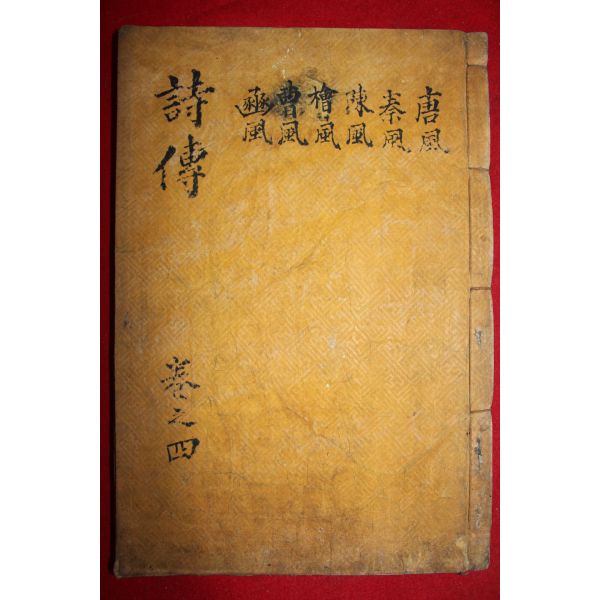 唐風
秦風
陳風
檜風
曹風
豳風
詩傳
卷之四